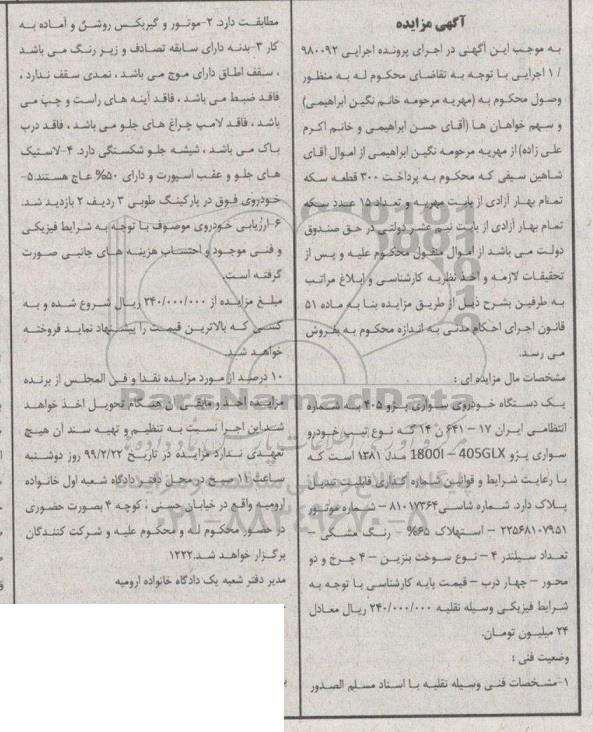 آگهی مزایده
به موجب این آگهی در اجرای پرونده اجرایی ۹۸۰۰۹۲
/ ۱ اجرایی با توجه به تقاضای محکوم له به منظور
وصول محکوم به (مهریه مرحومه خانم نگین ابراهیمی)
و سهم خواهان ها (آقای حسن ابراهیمی و خانم اکرم
علی زاده) از مهریه مرحومه نگین ابراهیمی از اموال آقای
شاهین سیفی که محکوم به پرداخت ۳۰۰ قطعه سکه
تمام بهار آزادی از بابت مهریه و تعداد ۱۵ عدد سکه
تمام بهار آزادی از بابت نیم عشر دولتی در حق صندوق
دولت می باشد از اموال منقول محکوم علیه و پس از
تحقیقات لازمه و اخذ نظریه کارشناسی و ابلاغ مراتب
به طرفین بشرح ذیل از طریق مزایده بنا به ماده ۵۱
قانون اجرای احکام مدنی به اندازه محکوم به بفروش
می رسد.
مشخصات مال مزایده ای :
یک دستگاه خودروی سواری پژو ۴۰۵ به شماره
انتظامی ایران ۱۷ – ۶۴۱ ن ۱۴ که نوع تیپ خودرو
سواری پژو 405GLX – 1800I مدل ۱۳۸۱ است که
با رعایت شرایط و قوانین شماره گذاری قابلیت تبدیل
پلاک دارد. شماره شاسی ۸۱۰۱۷۳۶۴ – شماره موتور
۲۲۵۶۸۱۰۷۹۵۱ – استهلاک ۶۵% – رنگ مشکی –
تعداد سیلندر ۴ – نوع سوخت بنزین – ۴ چرخ و دو
محور – چهار درب – قیمت پایه کارشناسی با توجه به
شرایط فیزیکی وسیله نقلیه ۲۴۰/۰۰۰/۰۰۰ ریال معادل
۲۴ میلیون تومان.
وضعیت فنی :
۱-مشخصات فنی وسیله نقلیه با اسناد مسلم الصدور
مطابقت دارد. ۲-موتور و گیربکس روشن و آماده به
کار ۳-بدنه دارای سابقه تصادف و زیر رنگ می باشد
، سقف اطاق دارای موج می باشد ، نمدی سقف ندارد ،
فاقد ضبط می باشد ، فاقد آینه های راست و چپ می
باشد ، فاقد لامپ چراغ های جلو می باشد ، فاقد درب
باک می باشد ، شیشه جلو شکستگی دارد. ۴-لاستیک
های جلو و عقب اسپورت و دارای ۵۰% عاج هستند.۵-
خودروی فوق در پارکینگ طوبی ۳ ردیف ۲ بازدید شد.
۶-ارزیابی خودروی موصوف با توجه به شرایط فیزیکی
و فنی موجود و احتساب هزینه های جانبی صورت
گرفته است.
مبلغ مزایده از ۲۴۰/۰۰۰/۰۰۰ ریال شروع شده و به
کسی که بالاترین قیمت را پیشنهاد نماید فروخته
خواهد شد.
۱۰ درصد از مورد مزایده نقدا و فی المجلس از برنده
مزایده اخذ و مابقی آن هنگام تحویل اخذ خواهد
شد.این اجرا نسبت به تنظیم و تهیه سند آن هیچ
تعهدی ندارد مزایده در تاریخ ۹۹/۲/۲۲ روز دوشنبه
ساعت ۱۱ صبح در محل دفتر دادگاه شعبه اول خانواده
ارومیه واقع در خیابان حسنی ، کوچه ۴ بصورت حضوری
در حضور محکوم له و محکوم علیه و شرکت کنندگان
برگزار خواهد شد.۱۲۲۲
مدیر دفتر شعبه یک دادگاه خانواده ارومیه
ParsNamadData
۰۲۱-۸۸۳۴۹۶۷۰-۵